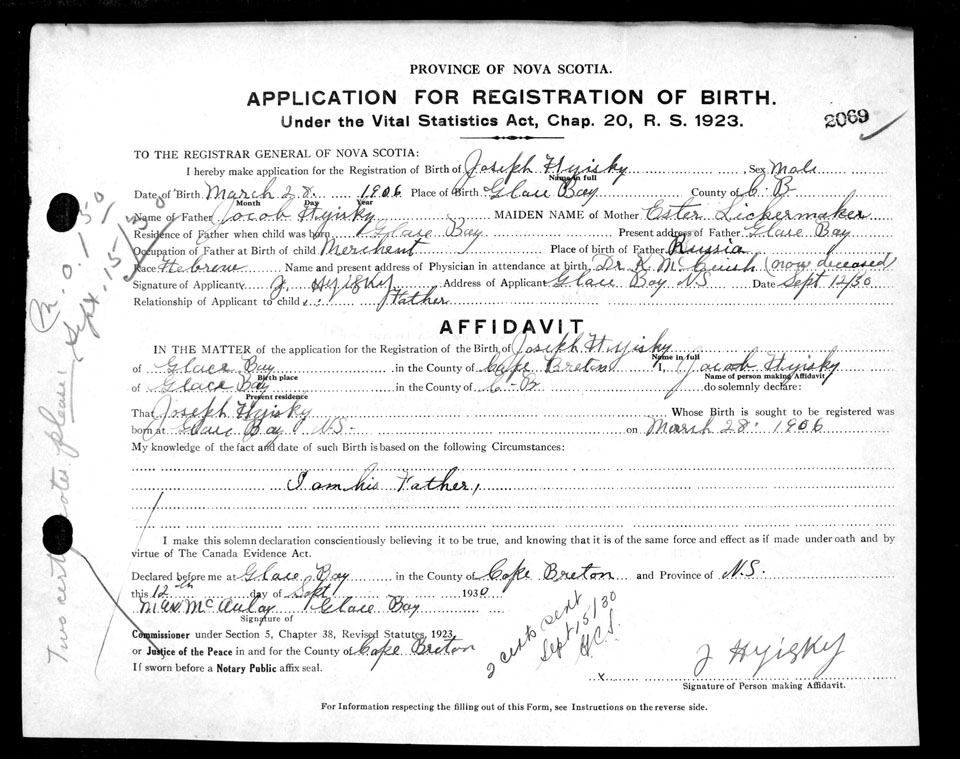 PROVINCE OF NOVA SCOTIA.
APPLICATION FOR REGISTRATION OF BIRTH.
Under the Vital Statistics Act, Chap. 20, R. S. 1923.
2069
TO THE REGISTRAR GENERAL OF NOVA SCOTIA:
I hereby make application for the Registration of Birth of Joseph Hyisky Sex Male
Name in full
Date of Birth March 28. 1906 Place of Birth Glace Bay County of C. B
Month Day Year
Name of Father Jacob Hyisky MAIDEN NAME of Mother Ester Lickermaker
Residence of Father when child was born Glace Bay Present address of Father Glace Bay
Occupation of Father at Birth of child Merchant Place of birth of Father Russia
Race Hebrew Name and present address of Physician in attendance at birth Dr. K. McCuish (now deceased)
Signature of Applicant J. Hyisky Address of Applicant Glace Bay NS Date Sept 12/30
Relationship of Applicant to child Father
AFFIDAVIT
IN THE MATTER of the application for the Registration of the Birth of Joseph Hyisky
Name in full
of Glace Bay in the County of Cape Breton I, Jacob Hyisky
Birth place Name of person making Affidavit
of Glace Bay in the County of C-Br do solemnly declare:
Present residence
That Joseph Hyisky Whose Birth is sought to be registered was
born at Glace Bay N.S. on March 28. 1906
My knowledge of the fact and date of such Birth is based on the following Circumstances:
I am his Father,
I make this solemn declaration conscientiously believing it to be true, and knowing that it is of the same force and effect as if made under oath and by
virtue of The Canada Evidence Act.
Declared before me at Glace Bay in the County of Cape Breton and Province of N.S.
this 12th day of Sept 1930
McAulay Glace Bay
Signature of
Commissioner under Section 5, Chapter 38, Revised Statutes, 1923
or Justice of the Peace in and for the County of Cape Breton
If sworn before a Notary Public affix seal.
2 certs sent
Sept 15/30
x J Hyisky
Signature of Person making Affidavit.
For Information respecting the filling out of this Form, see Instructions on the reverse side.
Two certificates please.
Sept. 15/30